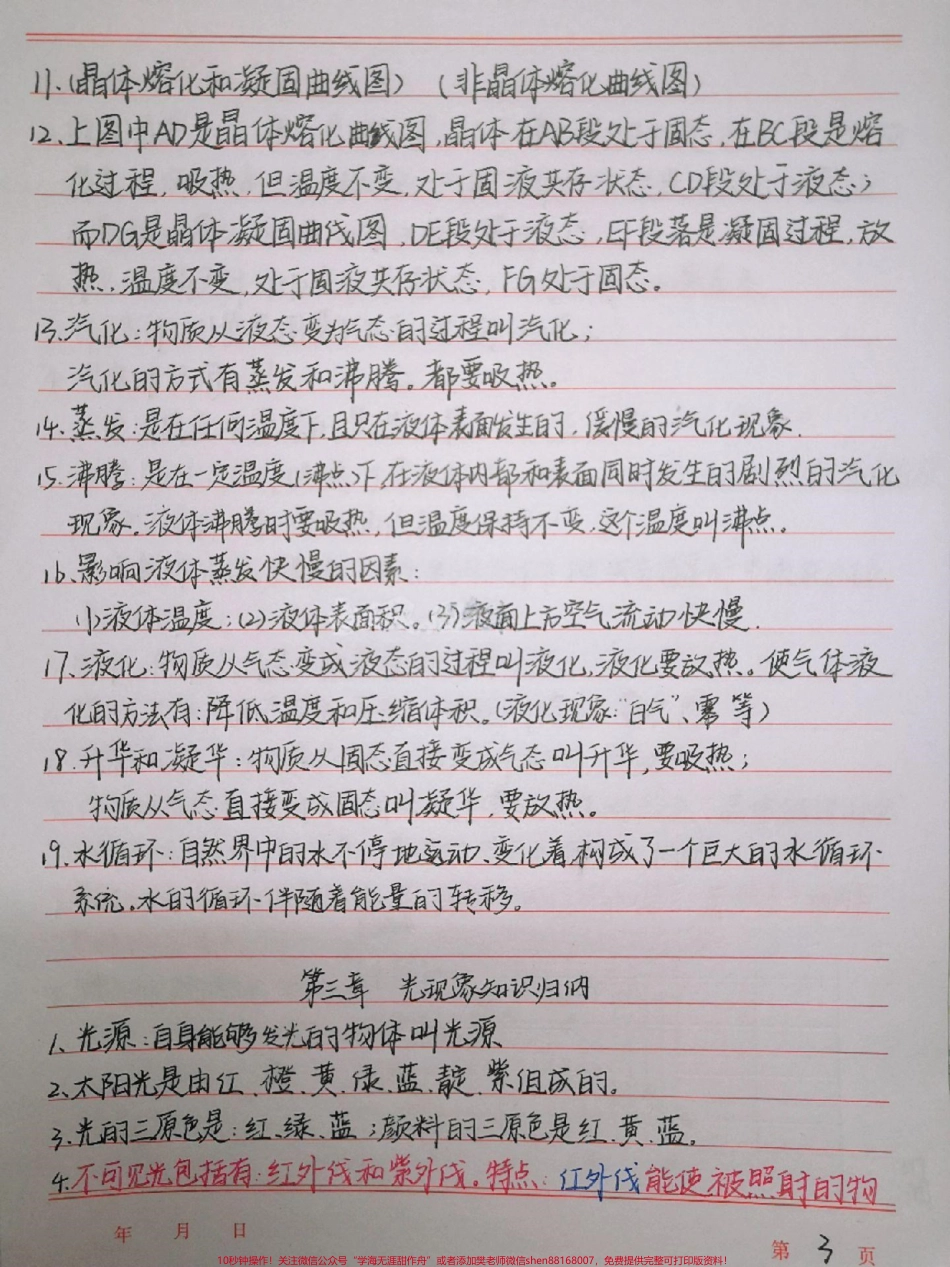 11.(晶体熔化和凝固曲线图) (非晶体熔化曲线图)
12.上图中AD是晶体熔化曲线图,晶体在AB段处于固态,在BC段是熔
化过程,吸热,但温度不变,处于固液共存状态,CD段处于液态;
而DG是晶体凝固曲线图,DE段处于液态,EF段落是凝固过程,放
热,温度不变,处于固液共存状态,FG处于固态。
13.汽化:物质从液态变为气态的过程叫汽化;
汽化的方式有蒸发和沸腾。都要吸热。
14.蒸发:是在任何温度下,且只在液体表面发生的,缓慢的汽化现象.
15.沸腾:是在一定温度(沸点)下,在液体内部和表面同时发生的剧烈的汽化
现象。液体沸腾时要吸热,但温度保持不变,这个温度叫沸点。
16.影响液体蒸发快慢的因素:
(1)液体温度;(2)液体表面积。(3)液面上方空气流动快慢.
17.液化:物质从气态变成液态的过程叫液化,液化要放热。使气体液
化的方法有:降低温度和压缩体积。(液化现象:“白气”、雾等)
18.升华和凝华:物质从固态直接变成气态叫升华,要吸热;
物质从气态直接变成固态叫凝华,要放热。
19.水循环:自然界中的水不停地运动、变化着,构成了一个巨大的水循环
系统。水的循环伴随着能量的转移。
第三章 光现象知识归纳
1、光源:自身能够发光的物体叫光源
2.太阳光是由红、橙、黄、绿、蓝、靛、紫组成的。
3.光的三原色是:红、绿、蓝;颜料的三原色是红、黄、蓝。
4.不可见光包括有:红外线和紫外线。特点:红外线能使被照射的物
年 月 日
第 3 页
10秒钟操作!关注微信公众号“学海无涯甜作舟”或者添加樊老师微信shen88168007,免费提供完整可打印版资料!